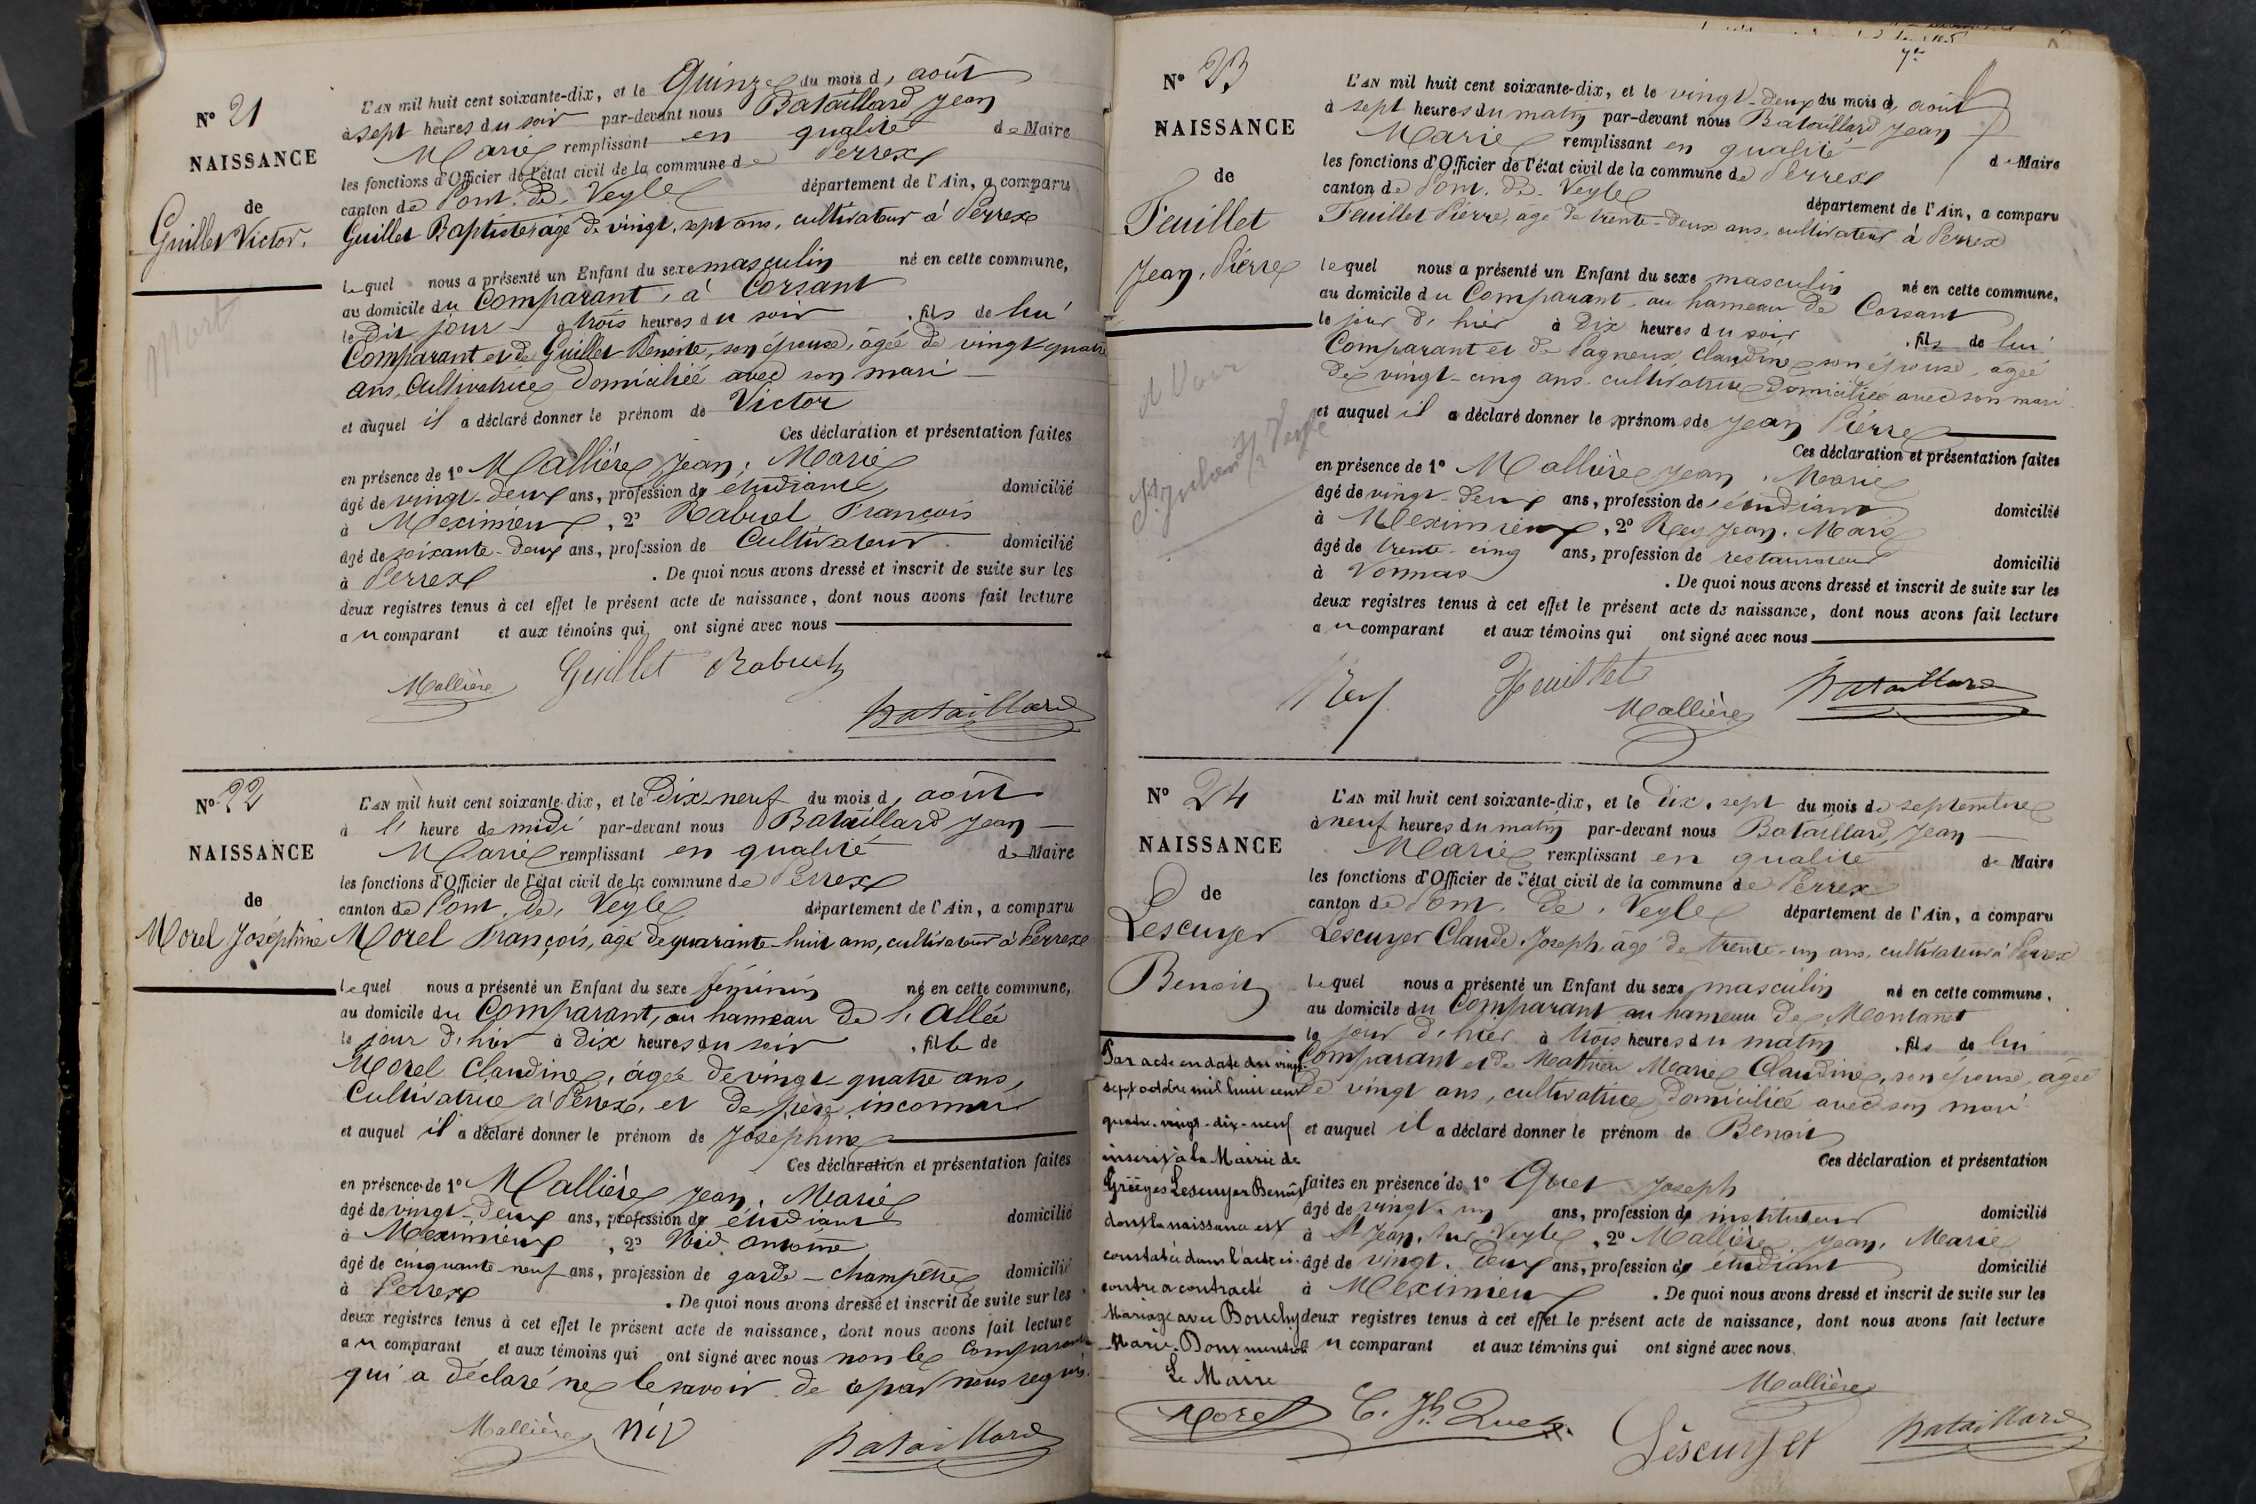 N° 21
NAISSANCE
de
Guillet Victor.
L'AN mil huit cent soixante-dix, et le Quinze du mois d'août
à sept heures du soir par-devant nous Bataillard Jean
Marie remplissant en qualité de Maire
les fonctions d'Officier de l'état civil de la commune de Perrex
canton de Pont-de-Veyle département de l'Ain, a comparu
Guillet Baptiste âgé de vingt-sept ans, cultivateur à Perrex
lequel nous a présenté un Enfant du sexe masculin né en cette commune,
au domicile du Comparant, à Corsant
le dit jour à trois heures du soir, fils de lui
Comparant et de Guillet Benoite, son épouse, âgée de vingt-quatre
ans, Cultivatrice domiciliée avec son mari
et auquel il a déclaré donner le prénom de Victor
Ces déclaration et présentation faites
en présence de 1° Mallière Jean, Marie
âgé de vingt-deux ans, profession de étudiant domicilié
à Meximieux, 2° Rabuel François
âgé de soixante-deux ans, profession de Cultivateur domicilié
à Perrex. De quoi nous avons dressé et inscrit de suite sur les
deux registres tenus à cet effet le présent acte de naissance, dont nous avons fait lecture
au comparant et aux témoins qui ont signé avec nous
Mallière Guillet Rabuel
Bataillard
N° 22
NAISSANCE
de
Morel Joséphine
L'AN mil huit cent soixante-dix, et le Dix-neuf du mois d'août
à l'heure de midi par-devant nous Bataillard Jean
Marie remplissant en qualité de Maire
les fonctions d'Officier de l'état civil de la commune de Perrex
canton de Pont-de-Veyle département de l'Ain, a comparu
Morel François, âgé de quarante-huit ans, cultivateur à Perrex
lequel nous a présenté un Enfant du sexe féminin né en cette commune,
au domicile du Comparant, au hameau de l'Allée
le jour d'hier à dix heures du soir, fille de
Morel Claudine, âgée de vingt-quatre ans,
Cultivatrice à Perrex, et de père inconnu
et auquel il a déclaré donner le prénom de Joséphine
Ces déclaration et présentation faites
en présence de 1° Mallière Jean, Marie
âgé de vingt-deux ans, profession de étudiant domicilié
à Meximieux, 2° Niv Antoine
âgé de cinquante-neuf ans, profession de garde-champêtre domicilié
à Perrex. De quoi nous avons dressé et inscrit de suite sur les
deux registres tenus à cet effet le présent acte de naissance, dont nous avons fait lecture
au comparant et aux témoins qui ont signé avec nous non le Comparant
qui a déclaré ne le savoir de ce par nous requis.
Mallière Niv Bataillard
N° 23
NAISSANCE
de
Feuillet
Jean, Pierre
A Voir
St Julien s/ Veyle
L'AN mil huit cent soixante-dix, et le vingt-deux du mois d'août
à sept heures du matin par-devant nous Bataillard Jean
Marie remplissant en qualité de Maire
les fonctions d'Officier de l'état civil de la commune de Perrex
canton de Pont-de-Veyle département de l'Ain, a comparu
Feuillet Pierre, âgé de trente-deux ans, cultivateur à Perrex
lequel nous a présenté un Enfant du sexe masculin né en cette commune,
au domicile du Comparant, au hameau de Corsant
le jour d'hier à dix heures du soir, fils de lui
Comparant et de Pagneux Claudine son épouse, âgée
de vingt-cinq ans, cultivatrice domiciliée avec son mari
et auquel il a déclaré donner les prénoms de Jean Pierre
Ces déclaration et présentation faites
en présence de 1° Mallière Jean, Marie
âgé de vingt-deux ans, profession de étudiant domicilié
à Meximieux, 2° Rey Jean, Marc
âgé de trente-cinq ans, profession de restaurateur domicilié
à Vonnas. De quoi nous avons dressé et inscrit de suite sur les
deux registres tenus à cet effet le présent acte de naissance, dont nous avons fait lecture
au comparant et aux témoins qui ont signé avec nous
Rey Feuillet Mallière Bataillard
N° 24
NAISSANCE
de
Lescuyer
Benoit
Par acte en date du vingt-
sept octobre mil huit cent
quatre-vingt-dix-neuf
inscrit à la Mairie de
Grièges Lescuyer Benoît
dont la naissance est
constatée dans l'acte ci-
contre a contracté
Mariage avec Bouchy
Marie. Dont mention
Le Maire
Morel
L'AN mil huit cent soixante-dix, et le dix-sept du mois de septembre
à neuf heures du matin par-devant nous Bataillard, Jean
Marie remplissant en qualité de Maire
les fonctions d'Officier de l'état civil de la commune de Perrex
canton de Pont-de-Veyle département de l'Ain, a comparu
Lescuyer Claude, Joseph, âgé de trente-un ans, cultivateur à Perrex
lequel nous a présenté un Enfant du sexe masculin né en cette commune,
au domicile du Comparant au hameau de Montanet
le jour d'hier à trois heures du matin, fils de lui
Comparant et de Mathieu Marie Claudine, son épouse, âgée
de vingt ans, cultivatrice domiciliée avec son mari
et auquel il a déclaré donner le prénom de Benoit
Ces déclaration et présentation
faites en présence de 1° Quet Joseph
âgé de vingt-un ans, profession de instituteur domicilié
à St Jean-sur-Veyle, 2° Mallière, Jean, Marie
âgé de vingt-deux ans, profession de étudiant domicilié
à Meximieux. De quoi nous avons dressé et inscrit de suite sur les
deux registres tenus à cet effet le présent acte de naissance, dont nous avons fait lecture
au comparant et aux témoins qui ont signé avec nous.
Mallière
C. Jh Quet Lescuyer Bataillard